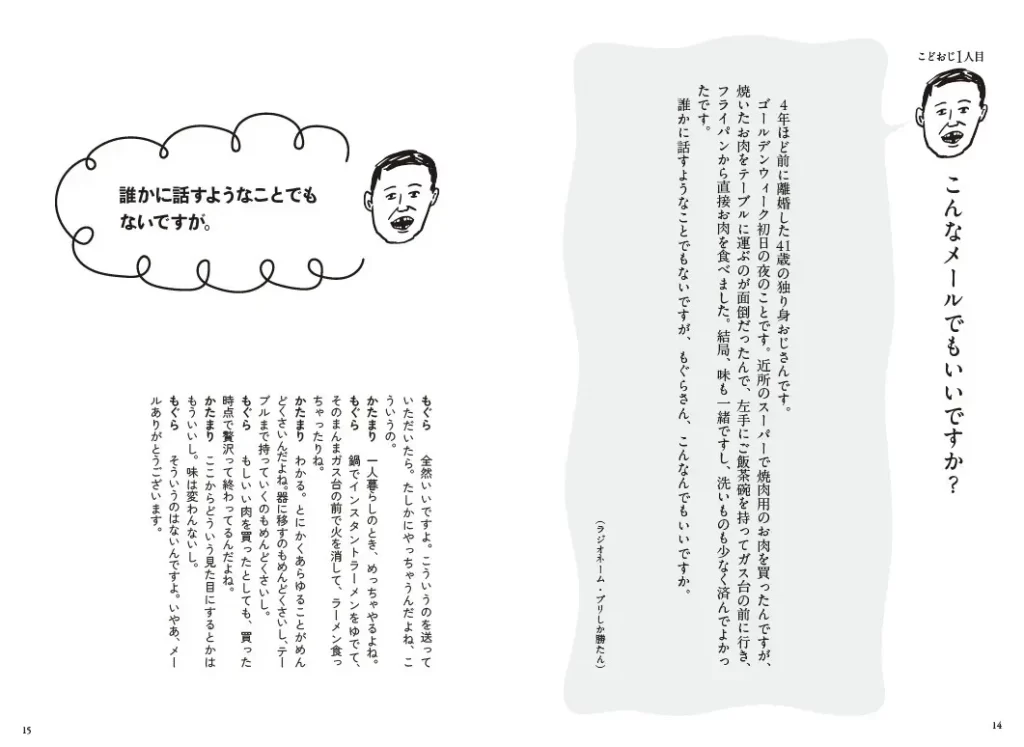 こどおじ1人目
こんなメールでもいいですか？
4年ほど前に離婚した41歳の独り身おじさんです。
ゴールデンウィーク初日の夜のことです。近所のスーパーで焼肉用のお肉を買ったんですが、
焼いたお肉をテーブルに運ぶのが面倒だったんで、左手にご飯茶碗を持ってガス台の前に行き、
フライパンから直接お肉を食べました。結局、味も一緒ですし、洗いものも少なく済んでよかっ
たです。
誰かに話すようなことでもないですが、もぐらさん、こんなんでもいいですか。
（ラジオネーム・ブリしか勝たん）
14
誰かに話すようなことでも
ないですが。
もぐら　全然いいですよ。こういうのを送って
いただいたら。たしかにやっちゃうんだよね、こ
ういうの。
かたまり　一人暮らしのとき、めっちゃやるよね。
もぐら　鍋でインスタントラーメンをゆでて、
そのまんまガス台の前で火を消して、ラーメン食っ
ちゃったりね。
かたまり　わかる。とにかくあらゆることがめん
どくさいんだよね。器に移すのもめんどくさいし、テー
ブルまで持っていくのもめんどくさいし。
もぐら　もしいい肉を買ったとしても、買った
時点で贅沢って終わってるんだよね。
かたまり　ここからどういう見た目にするとかは
もういいし。味は変わんないし。
もぐら　そういうのはないんですよ。いやあ、メー
ルありがとうございます。
15